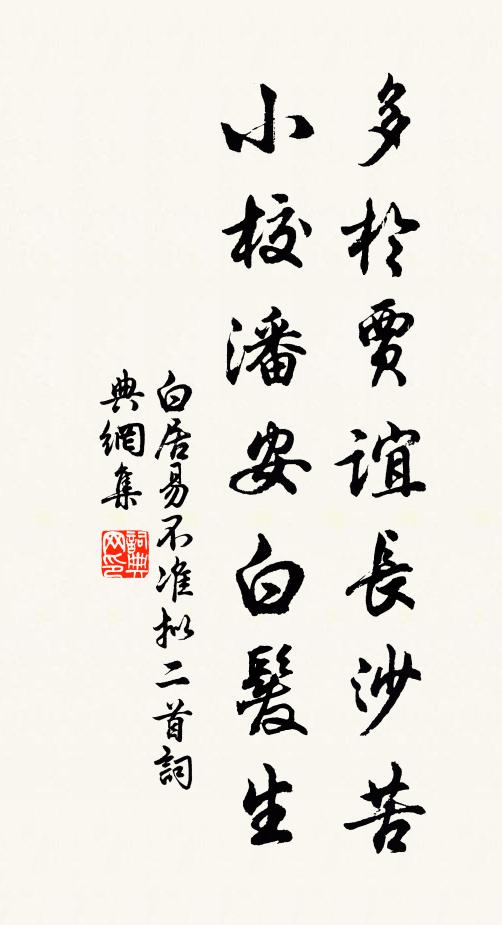 多於賈誼長沙苦
小校潘安白髮生
白居易不准拟二首詞
典網集
詞典网印